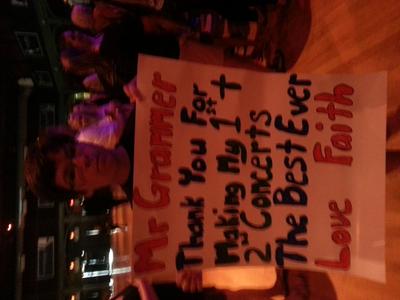 Mr Grammer
Thank You For
Making My 1st +
2nd Concerts
The Best Ever
Love Faith